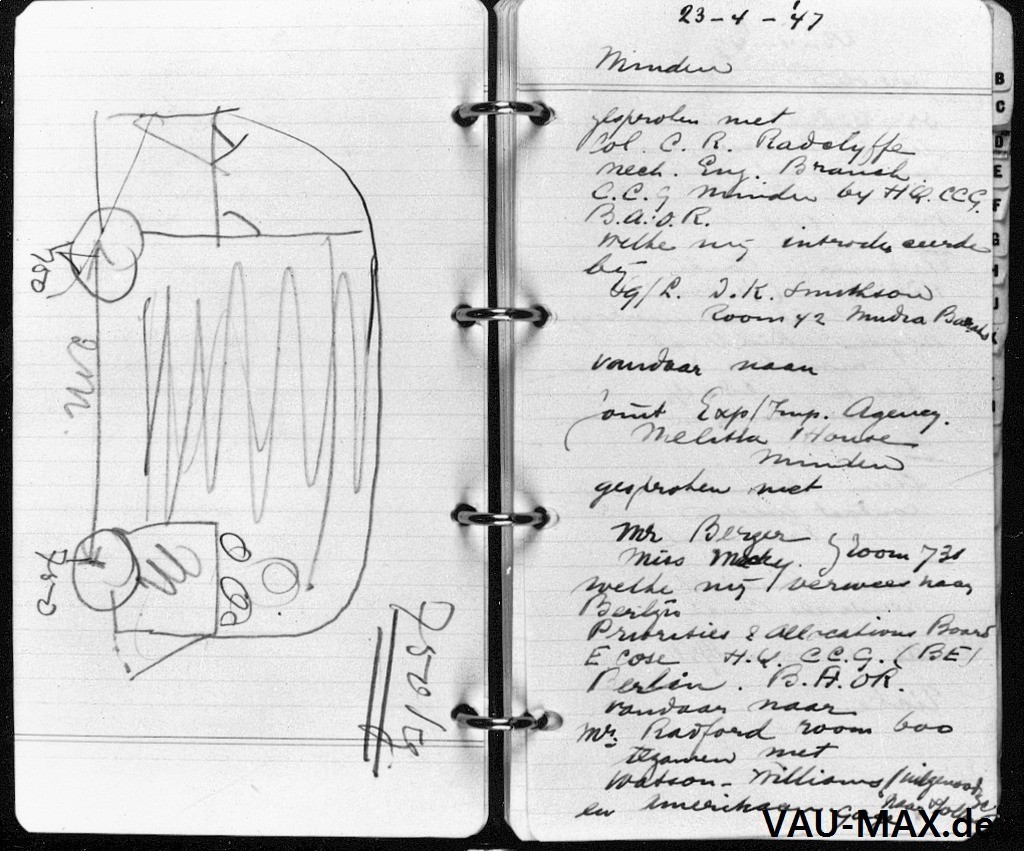 750
2 M.
750
750 kg
23-4-'47
Minden
gesproken met
Col. C. R. Radclyffe
Mech. Eng. Branch
C.C.G Minden by HQ. CCG.
B.A.O.R.
welke mij introduceerde
bij
J.K. Smithson
Room 42 Mudra
vandaar naar
Joint Exp/Imp. Agency.
Melitta House
Minden
gesproken met
Mr Berger
Miss room 731
welke mij verwees naar
Berlijn
Priorities & Allocations Board
Ecose H.Q. C.C.G. (BE)
Berlin. B.A.O.R.
vandaar naar
Mr. Radford room 600
tezamen met
Watson-Williams
en Amerikaan
B
C
D
E
F
G
H
J
K
VAU-MAX.de